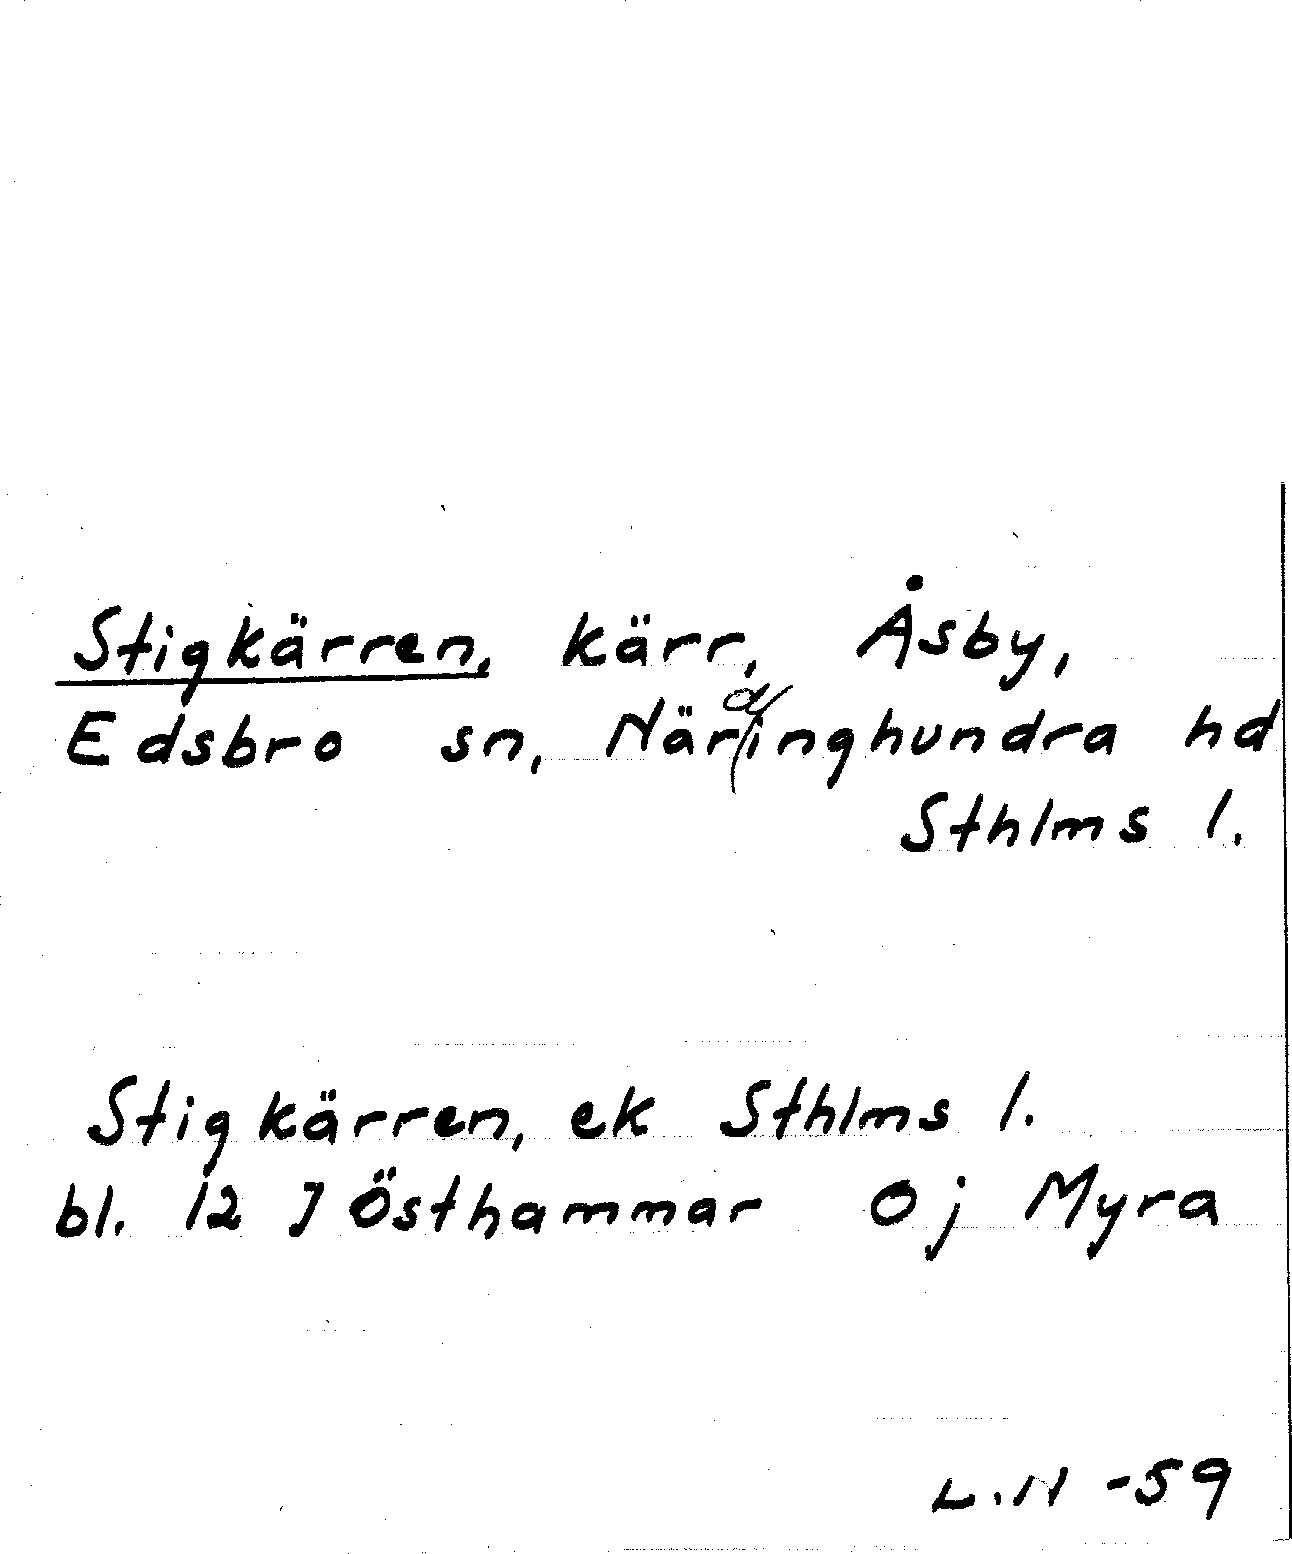 Stigkärren, kärr, Åsby,
Edsbro sn, Närdinghundra hd
Sthlms l.
Stigkärren, ek Sthlms l.
bl. 12 J Östhammar Oj Myra
L.N -59